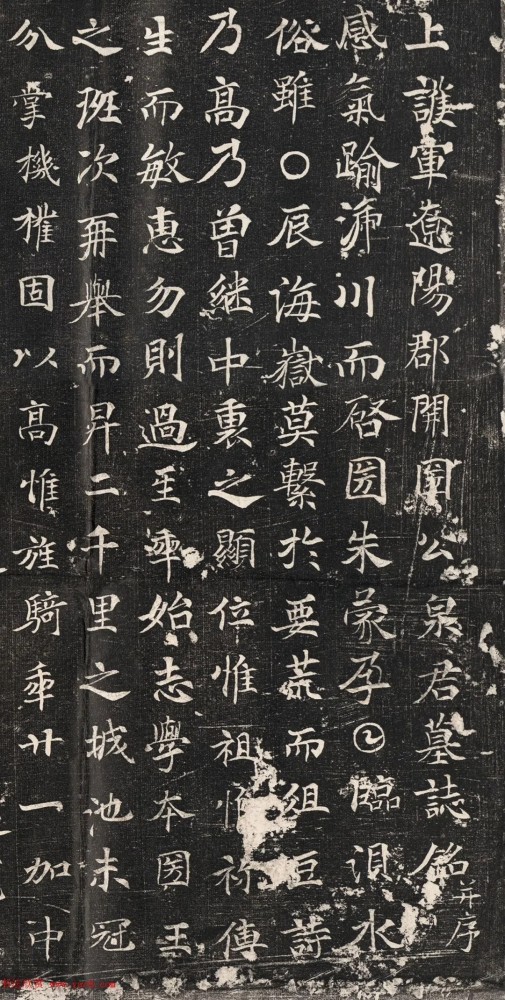 上護軍遼陽郡開圀公泉君墓誌銘并序
感氣踰㴲川而啓圀朱蒙孕𡆠臨浿水
俗雖〇辰海嶽莫繫於要荒而俎豆詩
乃高乃曾継中裏之顯位惟祖惟祢傳
生而敏惠勿則過𤯔年始志學本圀王
之班次再舉而昇二千里之城池未冠
分掌機權固以高惟旌騎年廿一加中